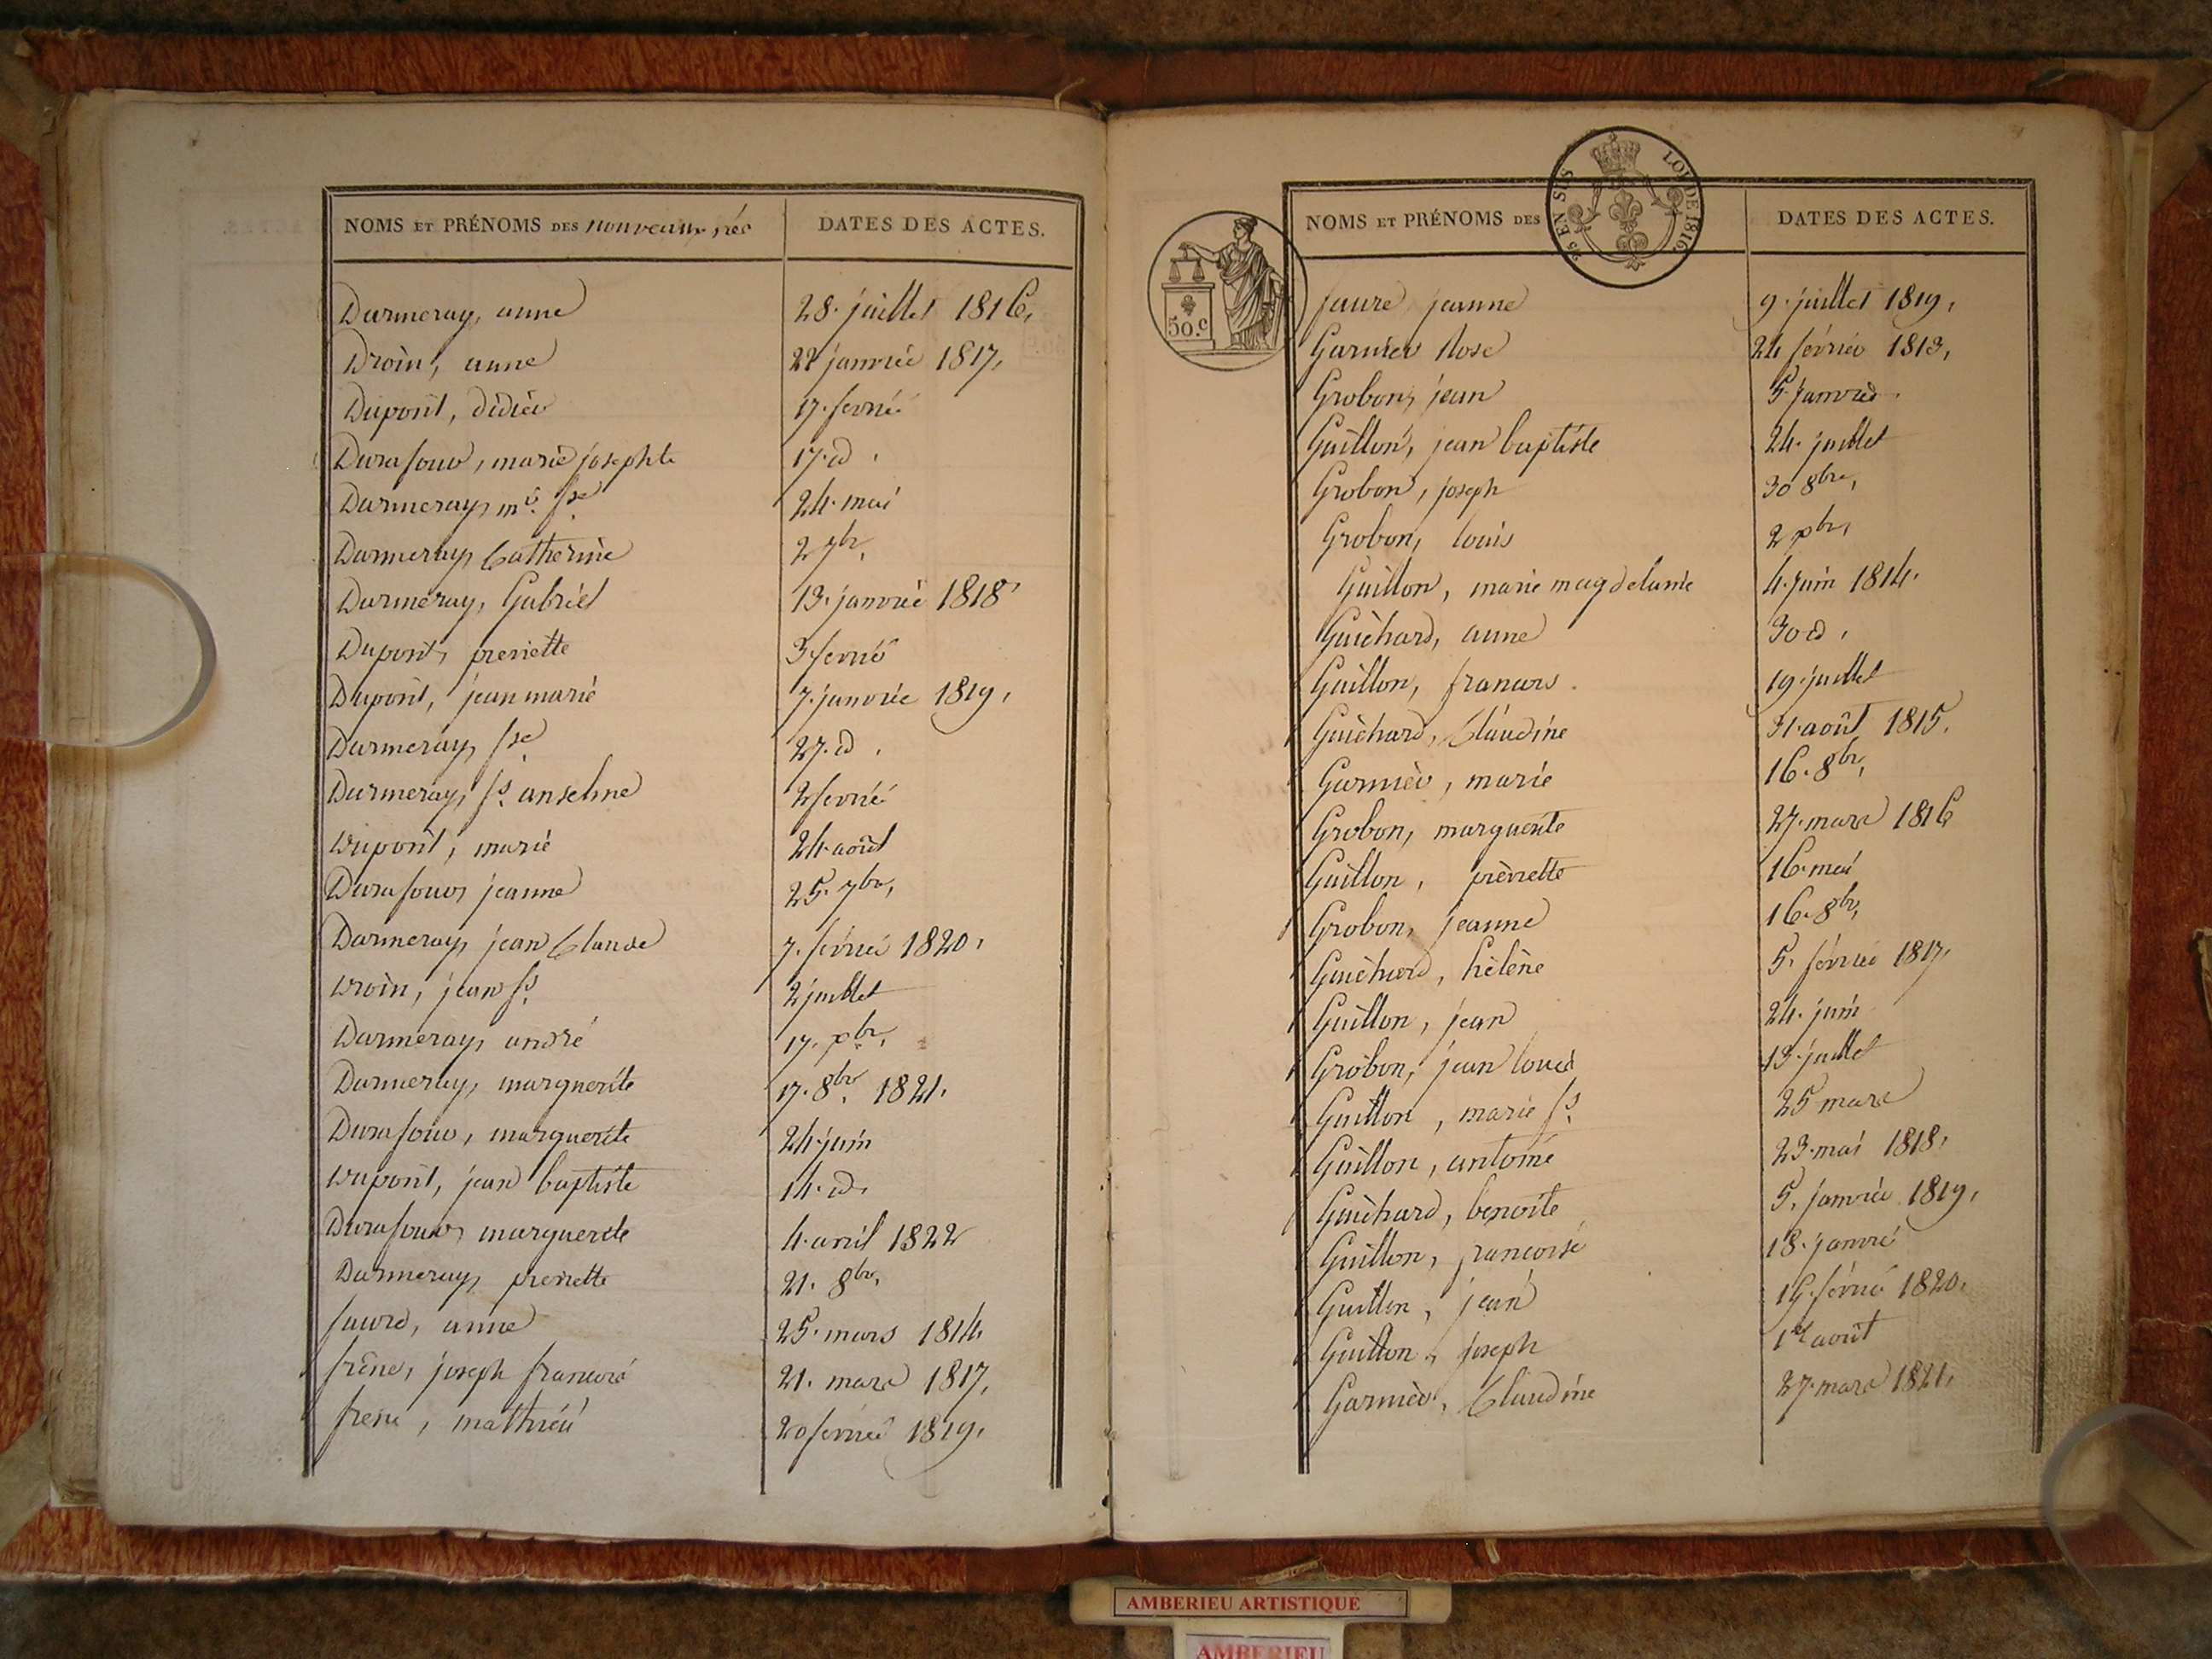 NOMS ET PRÉNOMS DES nouveaux nés DATES DES ACTES.
Darmeray, anne 28. juillet 1816,
Droin, anne 22 janvier 1817,
Dupont, didier 17. fevrier
Durafour, marie josephte 17. id.
Darmeray, mie. fse 24. mai
Darmeray, Catherine 2 7br,
Darmeray, Gabriel 13. janvier 1818,
Dupont, pierrette 3 fevrier
Dupont, jean marie 7. janvier 1819,
Darmeray, fse 27. id.
Darmeray, fs. anselme 2 fevrier
Dupont, marie 24. août
Durafour, jeanne 25. 7bre,
Darmeray, jean Claude 7. février 1820,
Droin, jean fs. 2 juillet
Darmeray, andré 17. xbre,
Darmeray, marguerite 17. 8bre. 1821.
Durafour, marguerite 24. juin
Dupont, jean baptiste 14. id.
Durafour, marguerite 4. avril 1822
Darmeray, pierrette 21. 8br,
faure, anne 25. mars 1814
frêne, joseph francois 21. mars 1817,
frene, mathieu 20 février 1819,
50.c
25 EN SUS LOI DE 1816.
NOMS ET PRÉNOMS DES DATES DES ACTES.
faure jeanne 9. juillet 1819,
Garnier Rose 24 février 1813,
Grobon, jean 5. janvier.
Guillon, jean baptiste 24. juillet
Grobon, joseph 30 8bre,
Grobon, louis 2 xbr,
Guillon, marie magdelaine 4. juin 1814.
Guichard, anne 30 id.
Guillon, francois. 19. juillet
Guichard, Claudine 31. août 1815.
Garnier, marie 16. 8br,
Grobon, marguerite 27. mars 1816
Guillon, pierrette 16. mai
Grobon, jeanne 16. 8br,
Guichard, hélène 5. février 1817,
Guillon, jean 24. juin
Grobon, jean louis 13. juillet
Guillon, marie fs. 25 mars
Guillon, antoine 23. mai 1818,
Guichard, benoite 5. janvier 1819,
Guillon, francoise 18. janvier
Guillon, jean 15. février 1820.
Guillon, joseph 1er août
Garnier, Claudine 27. mars 1821,
AMBERIEU ARTISTIQUE
AMBERIEU